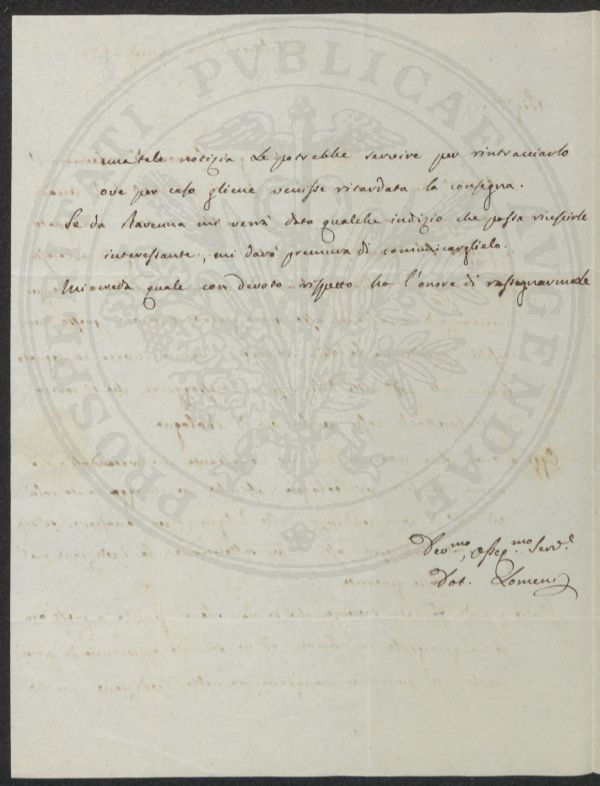 una tale notizia Le potrebbe servire per rintracciarlo
ove per caso gliene venisse ritardata la consegna.
Se da Ravenna mi verrà dato qualche indizio che possa riuscirle
interessante, mi darò premura di comunicarglielo.
Mi creda quale con devoto rispetto ho l'onore di rassegnarmele
Devmo, Osseqmo Serve
Dot. Lomeni
PROSPERITATI PVBLICAE AVGENDAE